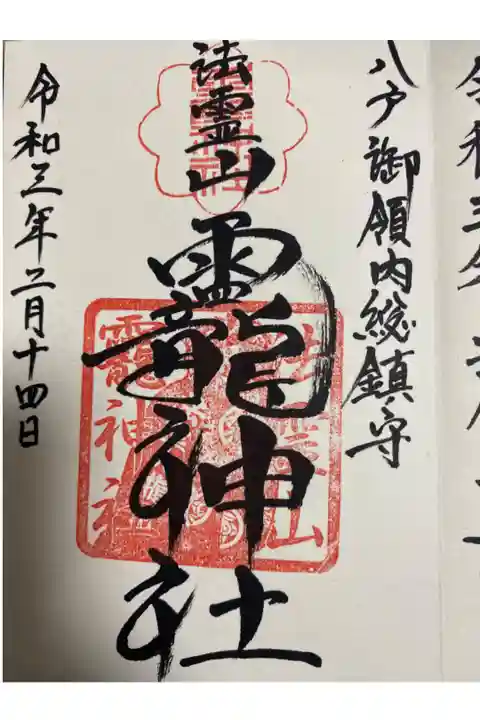 八戸御領内総鎮守
法霊山龗神社
令和三年二月十四日
法霊山
龗神社
令和三年